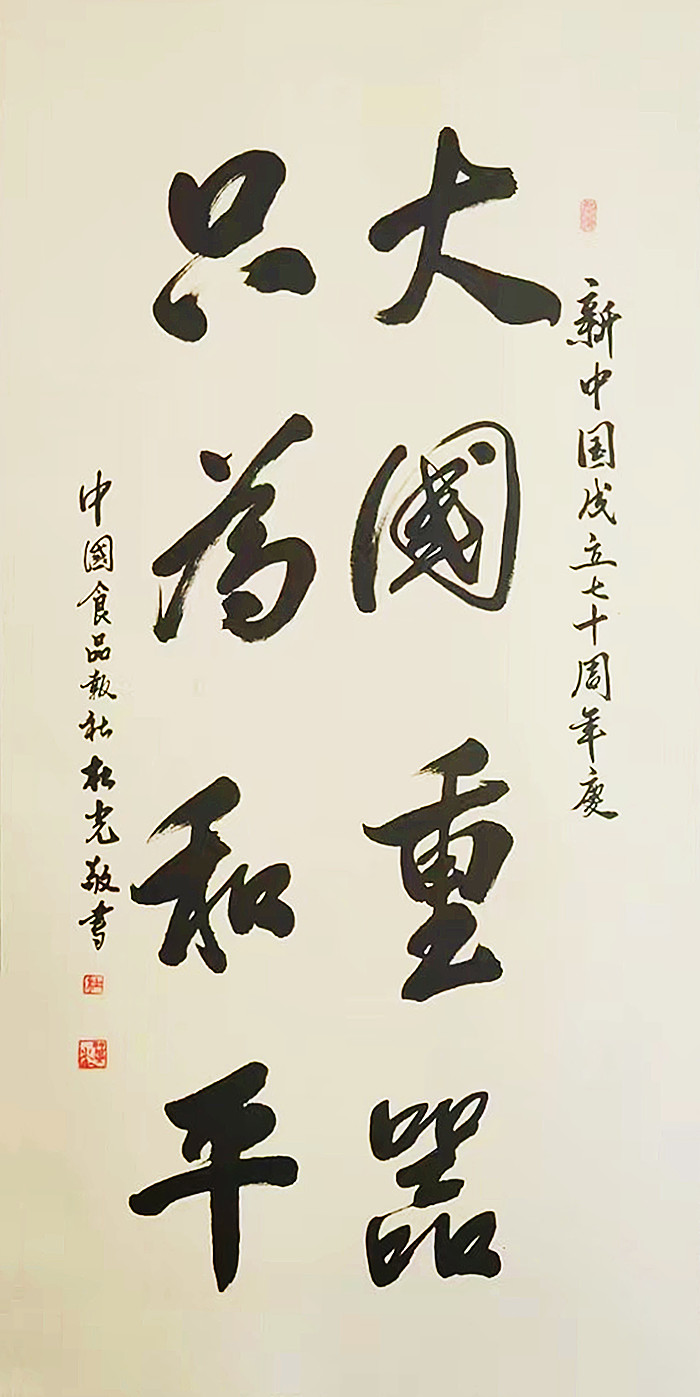 新中国成立七十周年庆
大國重器
只為和平
中國食品報社杜光敬書